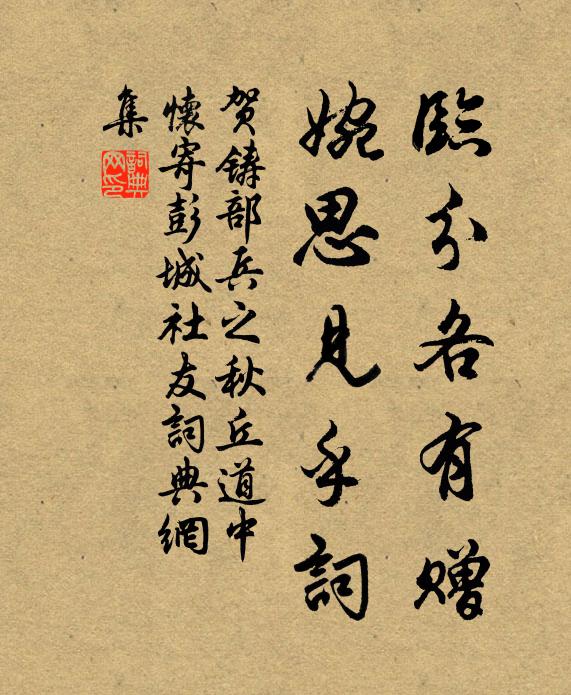 臨分各有贈
婉思見乎詞
贺鑄部兵之秋丘道中
懷寄彭城社友詞典網
集
詞典
网印